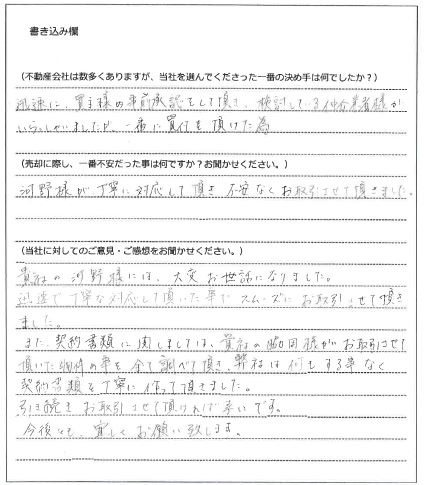 書き込み欄
（不動産会社は数多くありますが、当社を選んでくださった一番の決め手は何でしたか？）
迅速に、買主様の事前承認をして頂き、検討している仲介業者様が
いらっしゃいましたが、一番に買付を頂けた為
（売却に際し、一番不安だった事は何ですか？お聞かせください。）
河野様が丁寧に対応して頂き不安なくお取引させて頂きました。
（当社に対してのご意見・ご感想をお聞かせください。）
貴社の河野様には、大変お世話になりました。
迅速で丁寧な対応して頂いた事でスムーズにお取引させて頂き
ました。
また、契約書類に関しましては、貴社の岡様がお取引させて
頂いた物件の事を全て調べて頂き、弊社は何もする事なく
契約書類を丁寧に作って頂きました。
引き続きお取引させて頂ければ幸いです。
今後とも、宜しくお願い致します。